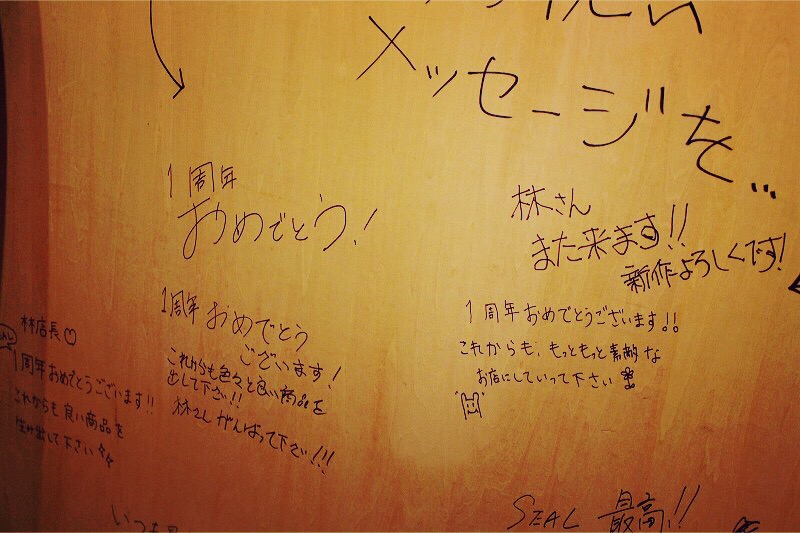 メッセージを...
1周年
おめでとう!
林さん
また来ます!!
新作よろしくです!
1周年おめでとう
ございます!
これからも色々と良い商品を
出して下さい!!
林さんがんばって下さい!!!
1周年おめでとうございます!!
これからも、もっともっと素敵な
お店にしていって下さい
林店長
1周年おめでとうございます!!
これからも良い商品を
生み出して下さい
SEAL 最高!!
いつも